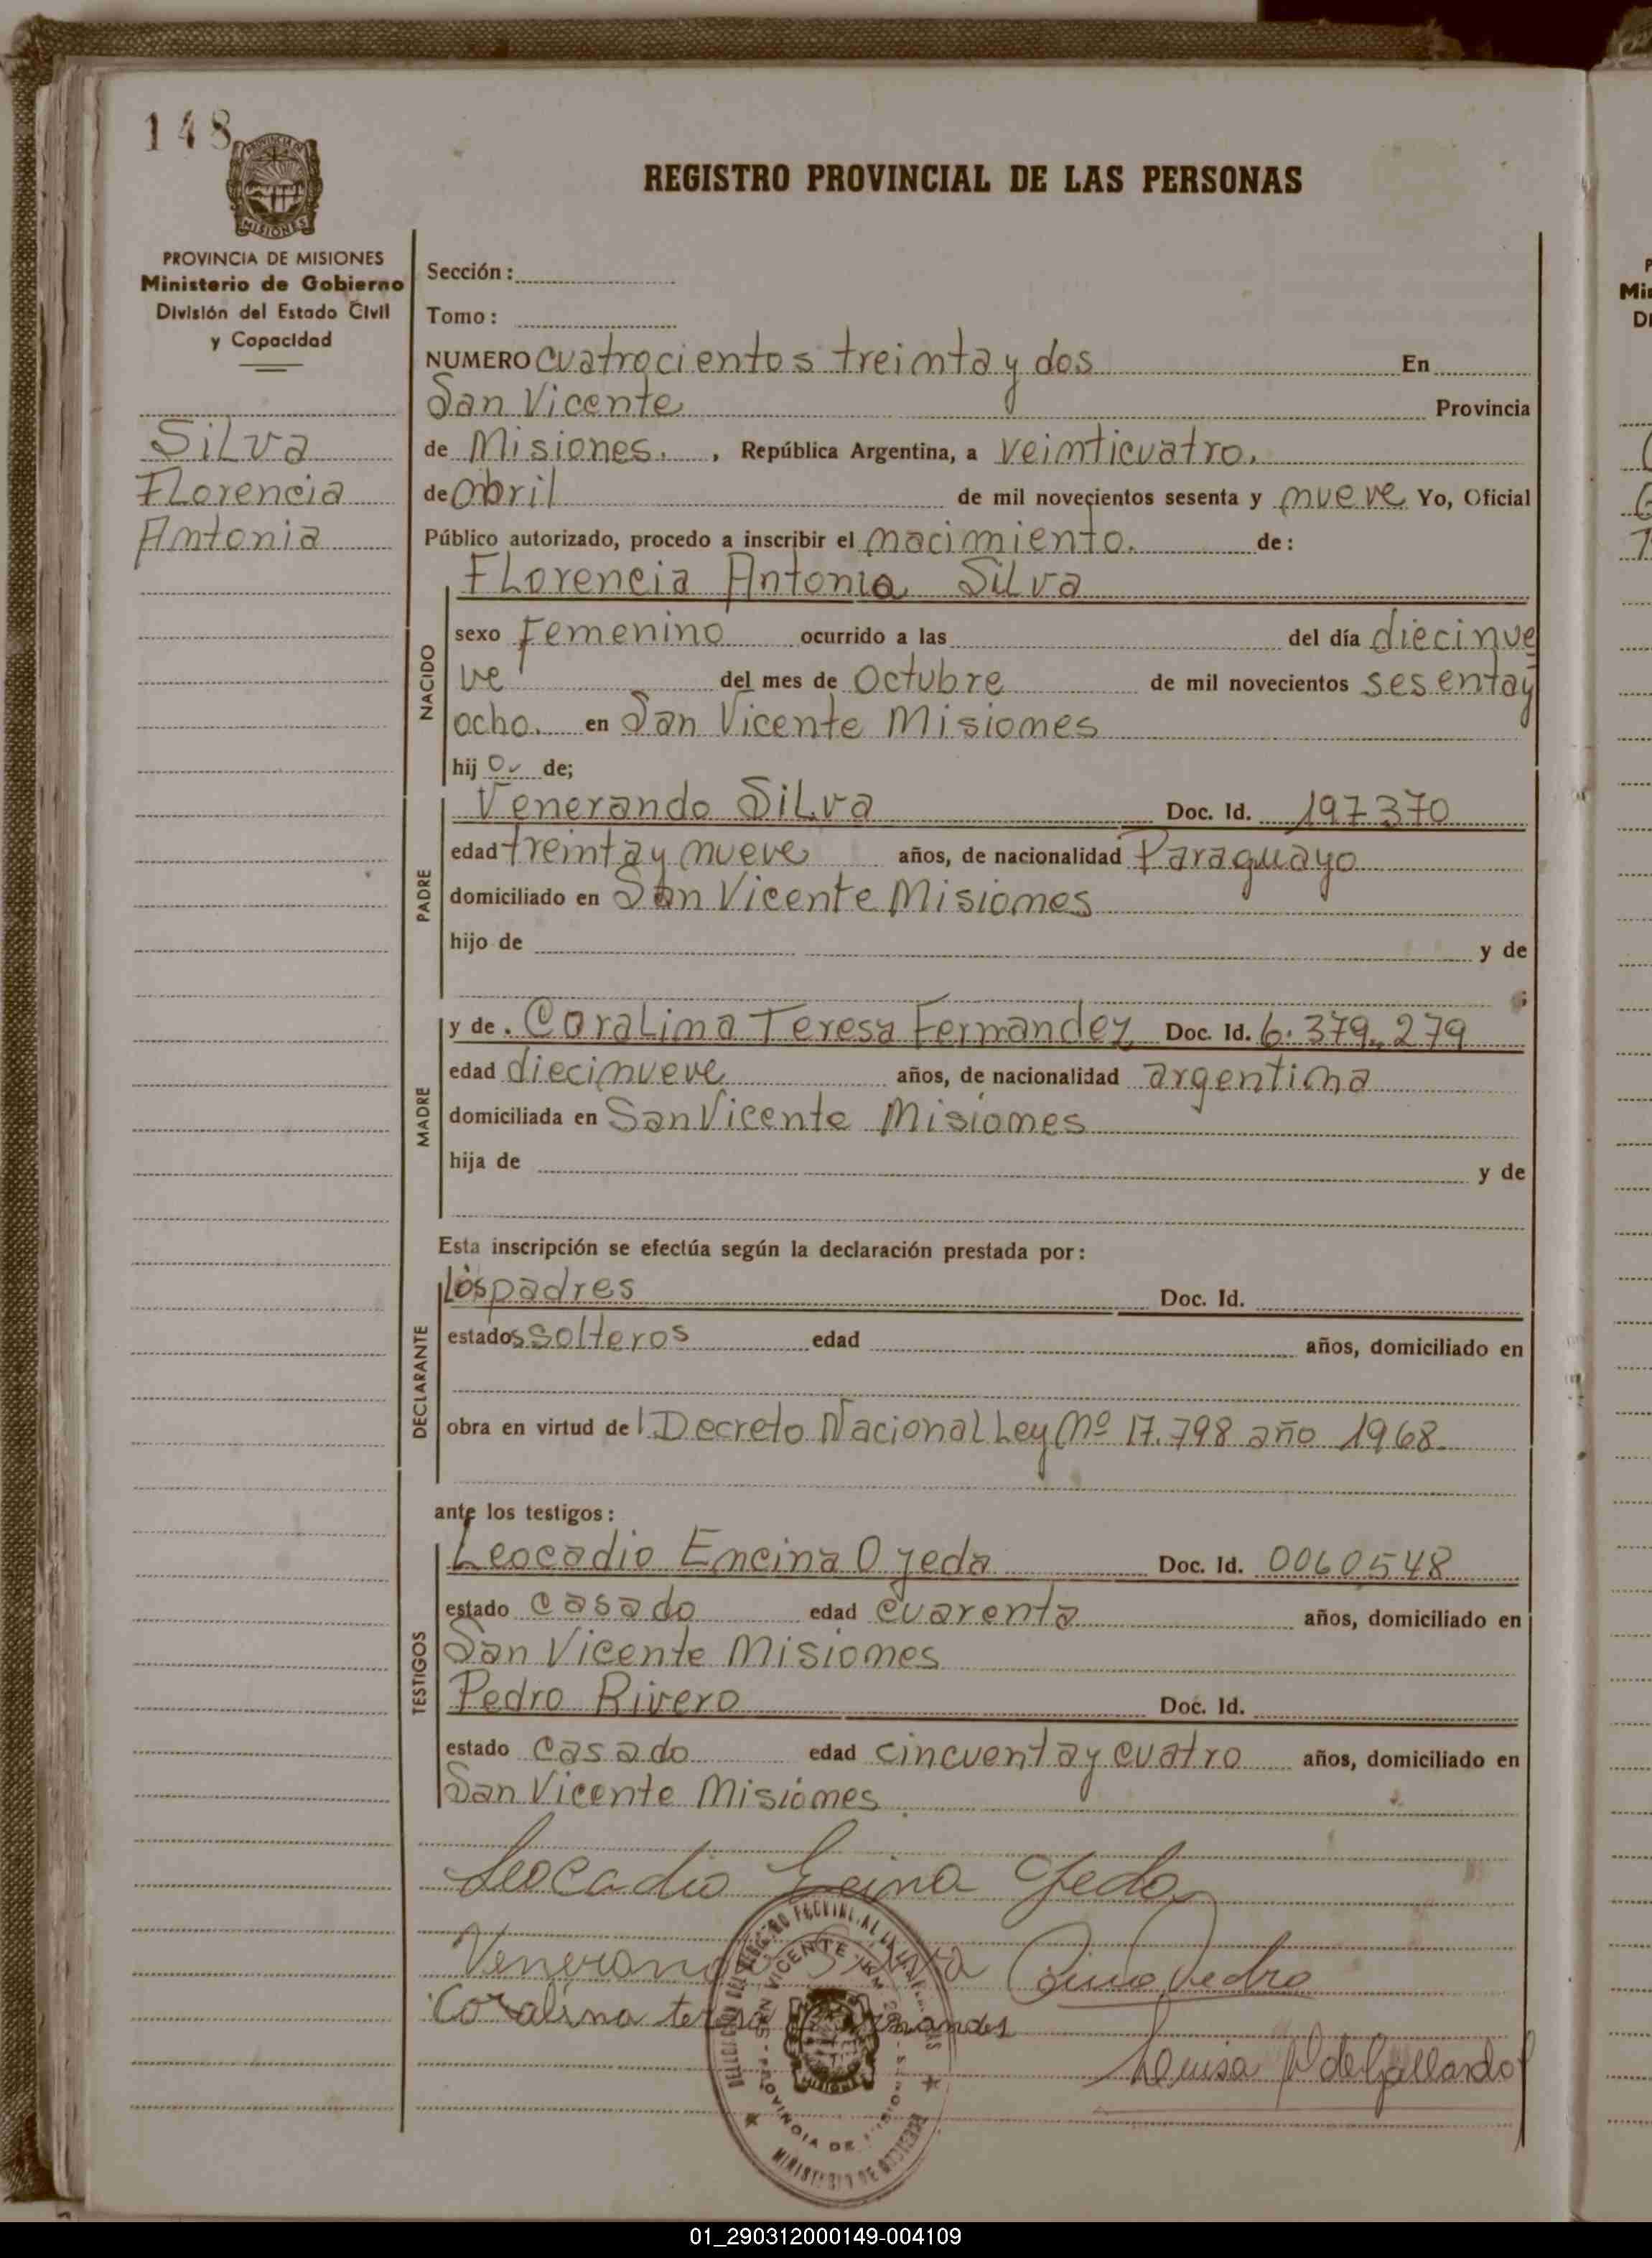 148
PROVINCIA DE MISIONES
Ministerio de Gobierno
División del Estado Civil
y Capacidad
Silva
Florencia
Antonia
REGISTRO PROVINCIAL DE LAS PERSONAS
Sección:
Tomo:
NUMERO cuatrocientos treinta y dos En
San Vicente Provincia
de Misiones. , República Argentina, a veinticuatro.
de abril de mil novecientos sesenta y nueve Yo, Oficial
Público autorizado, procedo a inscribir el nacimiento. de:
Florencia Antonia Silva
NACIDO
sexo Femenino ocurrido a las del día diecinue
ve del mes de Octubre de mil novecientos sesenta y
ocho. en San Vicente Misiones
hij a de;
PADRE
Venerando Silva Doc. Id. 197370
edad treinta y nueve años, de nacionalidad Paraguayo
domiciliado en San Vicente Misiones
hijo de y de
MADRE
y de . Coralina Teresa Fernandez Doc. Id. 6.379.279
edad diecinueve años, de nacionalidad argentina
domiciliada en San Vicente Misiones
hija de y de
Esta inscripción se efectúa según la declaración prestada por:
DECLARANTE
los padres Doc. Id.
estados solteros edad años, domiciliado en
obra en virtud del Decreto Nacional Ley Nº 17.798 año 1968
ante los testigos:
TESTIGOS
Leocadio Encina Ojeda Doc. Id. 0060548
estado casado edad cuarenta años, domiciliado en
San Vicente Misiones
Pedro Rivero Doc. Id.
estado casado edad cincuenta y cuatro años, domiciliado en
San Vicente Misiones
Leocadio Ecina Ojeda
Pedro
Coralina
Luisa de Gallardo
SAN VICENTE
PROVINCIA DE
MISIONES
01_290312000149-004109